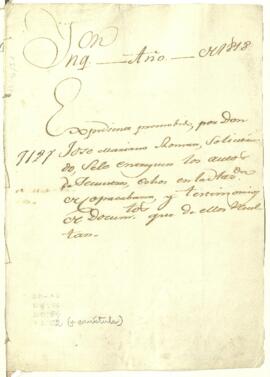 Año de 1818
Expediente promovido, por don
7197 Jose Mariano Roman, Solicitan
do, Sele entreguen los autos
de Secuestro, echos en la Hazda
de Copacabana, y testimonio
de Docum.tos que de ellos Resul
tan.
(+ carátula)